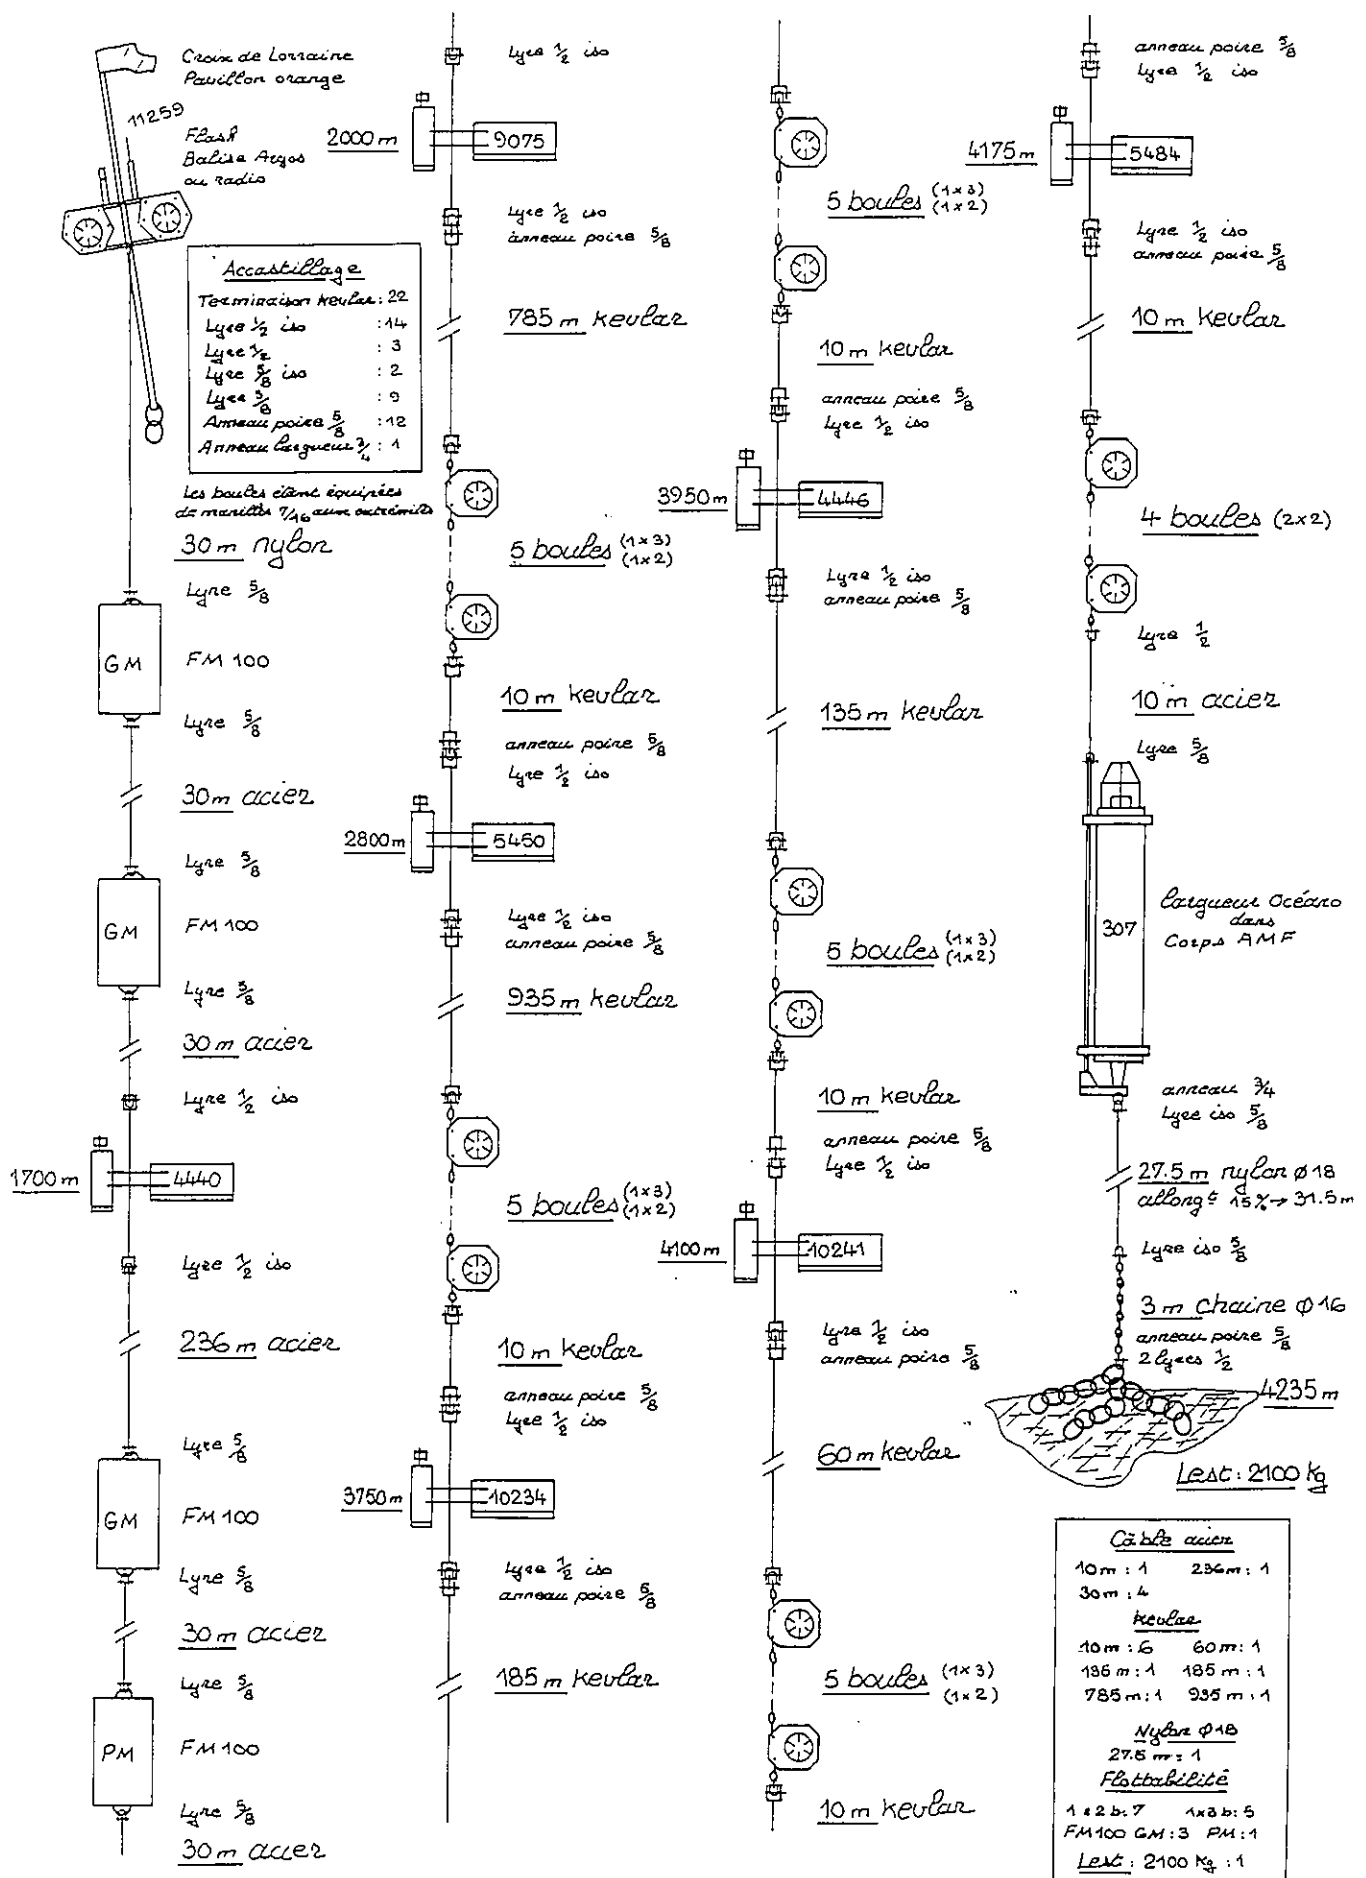 Croix de Lorraine
Pavillon orange
11259
Flash
Balise Argos
ou radio
Accastillage
Terminaison kevlar : 22
Lyre 1/2 iso : 14
Lyre 1/2 : 3
Lyre 5/8 iso : 2
Lyre 5/8 : 9
Anneau poire 5/8 : 12
Anneau largueur 3/4 : 1
Les boules étant équipées
de manilles 7/16 aux extrémités
30 m nylon
Lyre 5/8
GM
FM 100
Lyre 5/8
30 m acier
Lyre 5/8
GM
FM 100
Lyre 5/8
30 m acier
Lyre 1/2 iso
1700 m
4440
Lyre 1/2 iso
236 m acier
Lyre 5/8
GM
FM 100
Lyre 5/8
30 m acier
Lyre 5/8
PM
FM 100
Lyre 5/8
30 m acier
Lyre 1/2 iso
2000 m
9075
Lyre 1/2 iso
anneau poire 5/8
785 m kevlar
5 boules (1x3)
(1x2)
10 m kevlar
anneau poire 5/8
Lyre 1/2 iso
2800 m
5450
Lyre 1/2 iso
anneau poire 5/8
935 m kevlar
5 boules (1x3)
(1x2)
10 m kevlar
anneau poire 5/8
Lyre 1/2 iso
3750 m
10234
Lyre 1/2 iso
anneau poire 5/8
185 m kevlar
5 boules (1x3)
(1x2)
10 m kevlar
anneau poire 5/8
Lyre 1/2 iso
3950 m
4446
Lyre 1/2 iso
anneau poire 5/8
135 m kevlar
5 boules (1x3)
(1x2)
10 m kevlar
anneau poire 5/8
Lyre 1/2 iso
4100 m
10241
Lyre 1/2 iso
anneau poire 5/8
60 m kevlar
5 boules (1x3)
(1x2)
10 m kevlar
anneau poire 5/8
Lyre 1/2 iso
4175 m
5484
Lyre 1/2 iso
anneau poire 5/8
10 m kevlar
4 boules (2x2)
Lyre 1/2
10 m acier
Lyre 5/8
307
largueur Océano
dans
Corps AMF
anneau 3/4
Lyre iso 5/8
27.5 m nylon ø 18
allongt 15% → 31.5 m
Lyre iso 5/8
3 m chaine ø 16
anneau poire 5/8
2 lyres 1/2
4235 m
Lest : 2100 kg
Câble acier
10 m : 1 236 m : 1
30 m : 4
Kevlar
10 m : 6 60 m : 1
135 m : 1 185 m : 1
785 m : 1 935 m : 1
Nylon ø 18
27.5 m : 1
Flottabilité
1 x 2 b : 7 1 x 3 b : 5
FM100 GM : 3 PM : 1
Lest : 2100 kg : 1